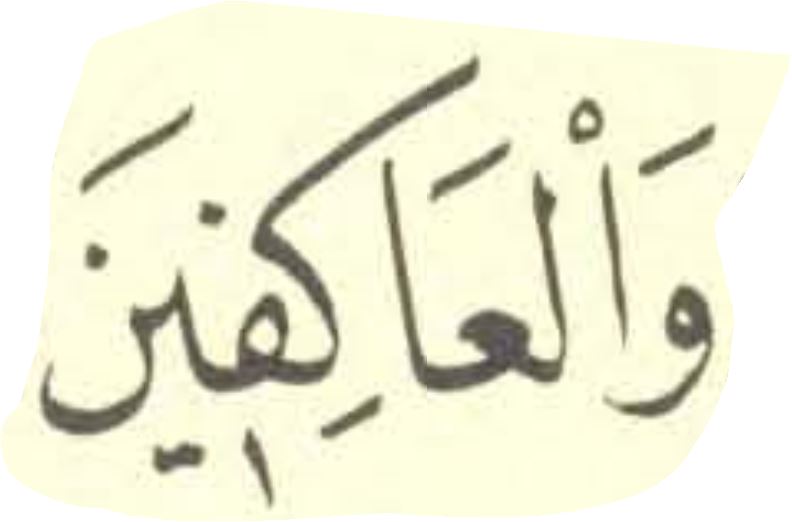 وَالْعَاكِفٖينَ